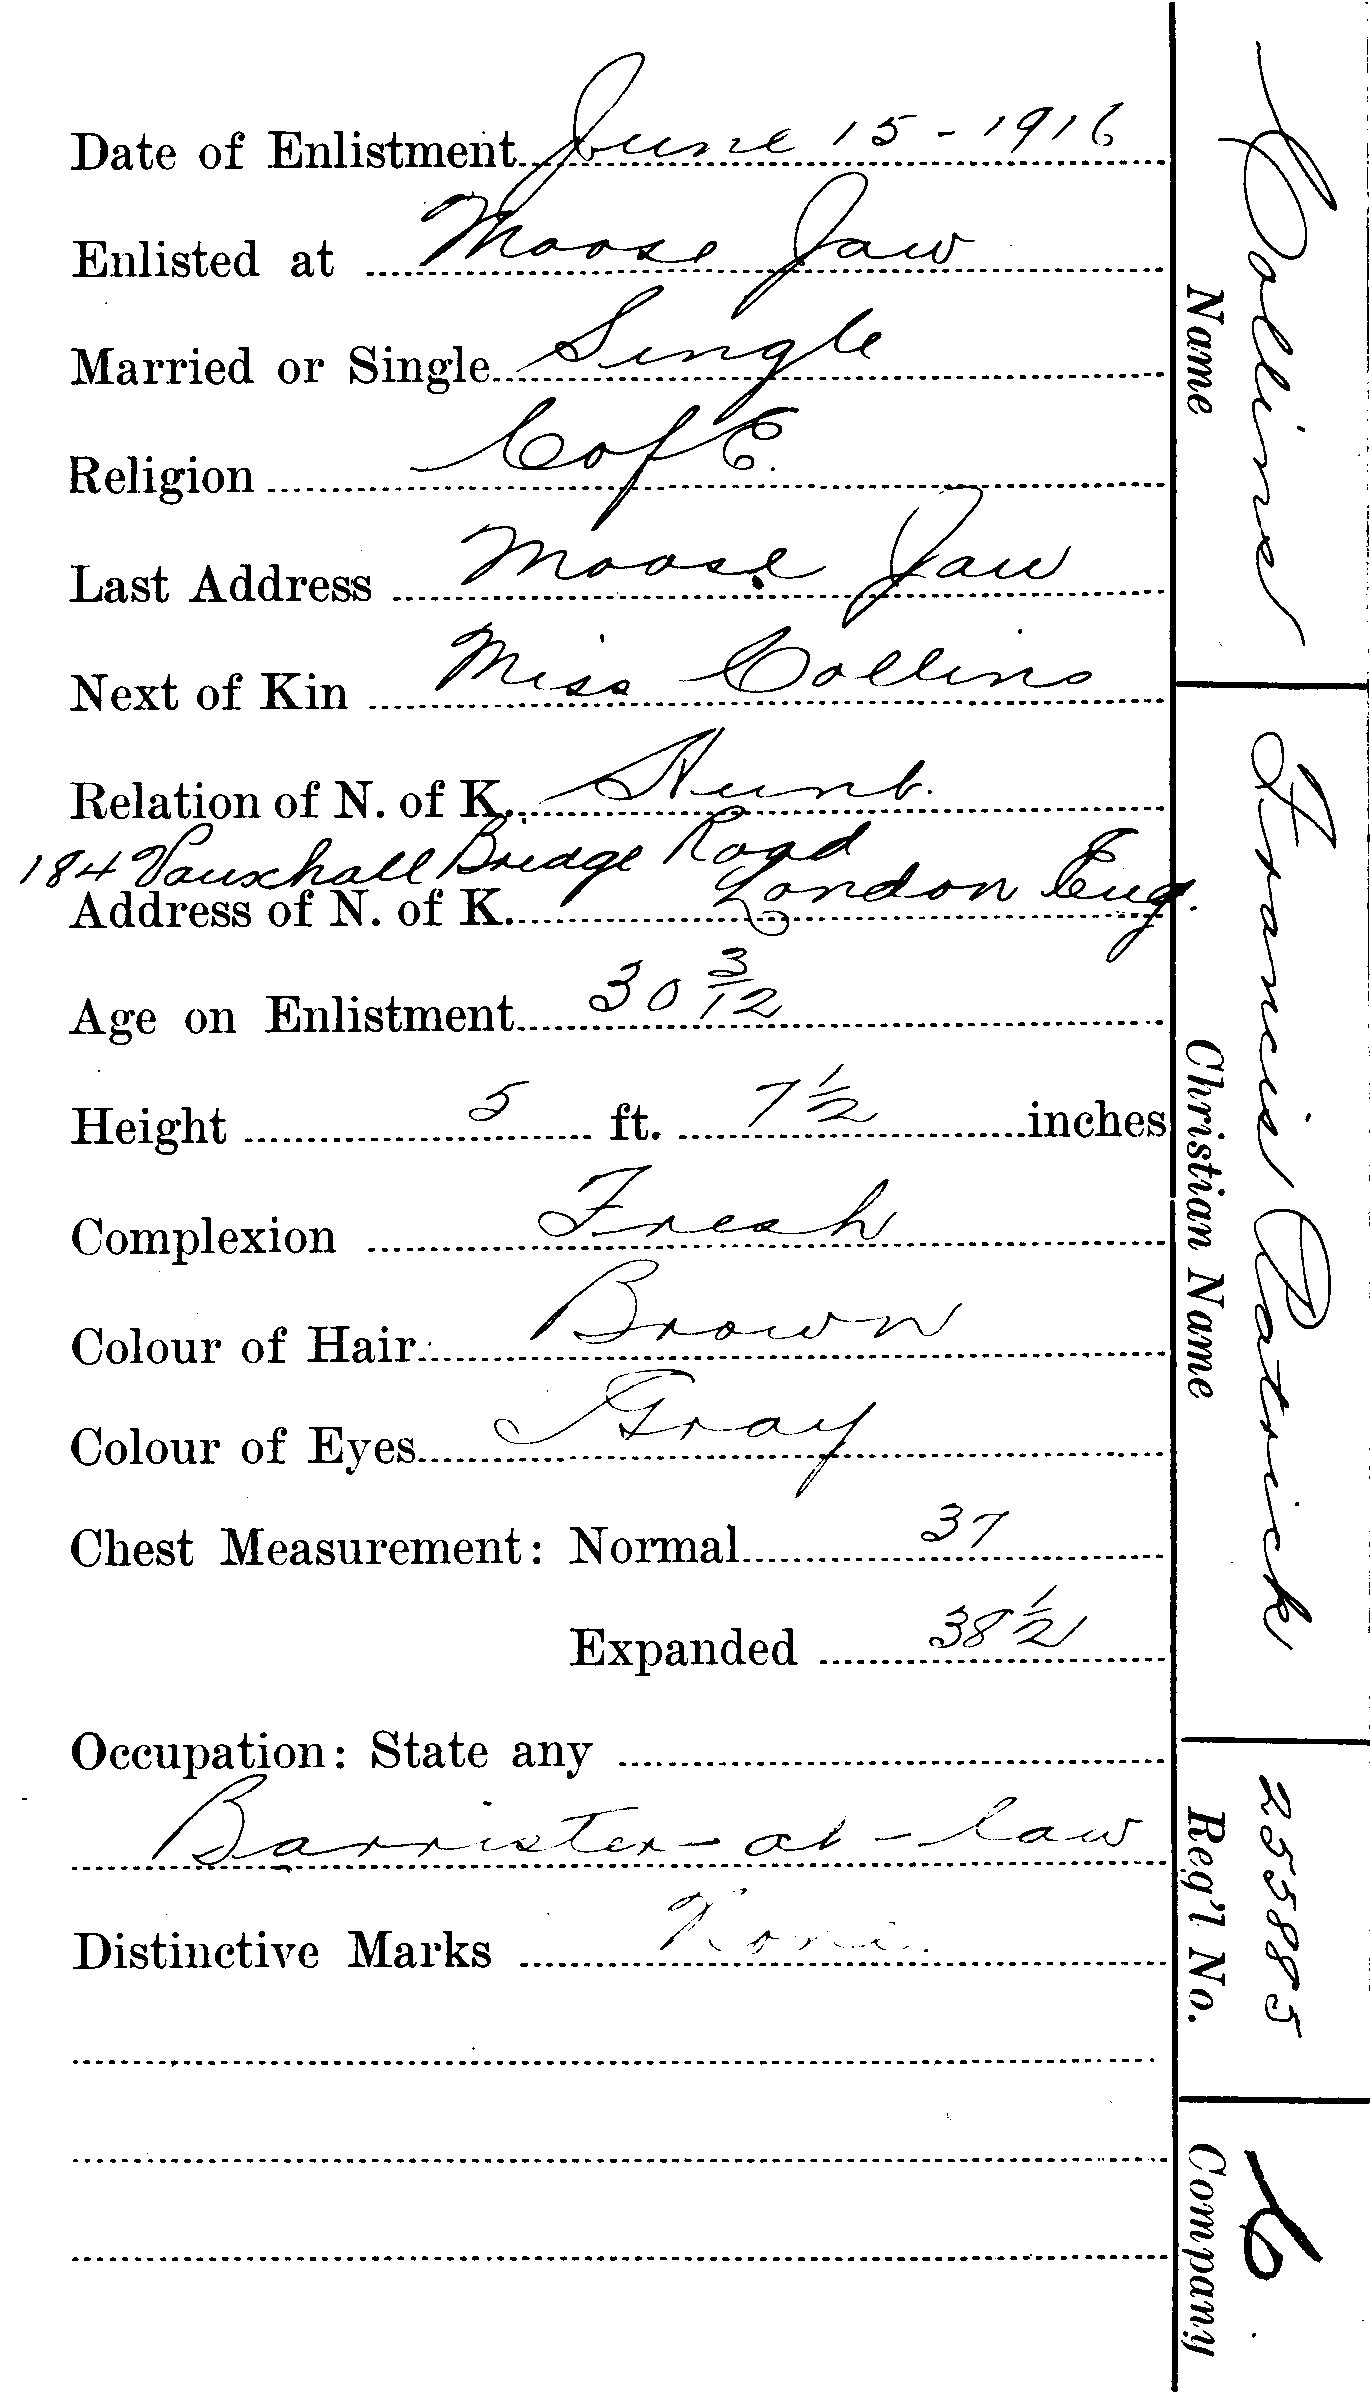 Date of Enlistment June 15 - 1916
Enlisted at Moose Jaw
Married or Single Single
Religion C of E.
Last Address Moose Jaw
Next of Kin Miss Collins
Relation of N. of K. Aunt.
184 Vauxhall Bridge Road
Address of N. of K. London Eng.
Age on Enlistment 30 3/12
Height 5 ft. 7 1/2 inches
Complexion Fresh
Colour of Hair Brown
Colour of Eyes Gray
Chest Measurement: Normal 37
Expanded 38 1/2
Occupation: State any
Barrister-at-law
Distinctive Marks None.
Collins
Name
Francis Patrick
Christian Name
255885
Reg'l No.
C
Company